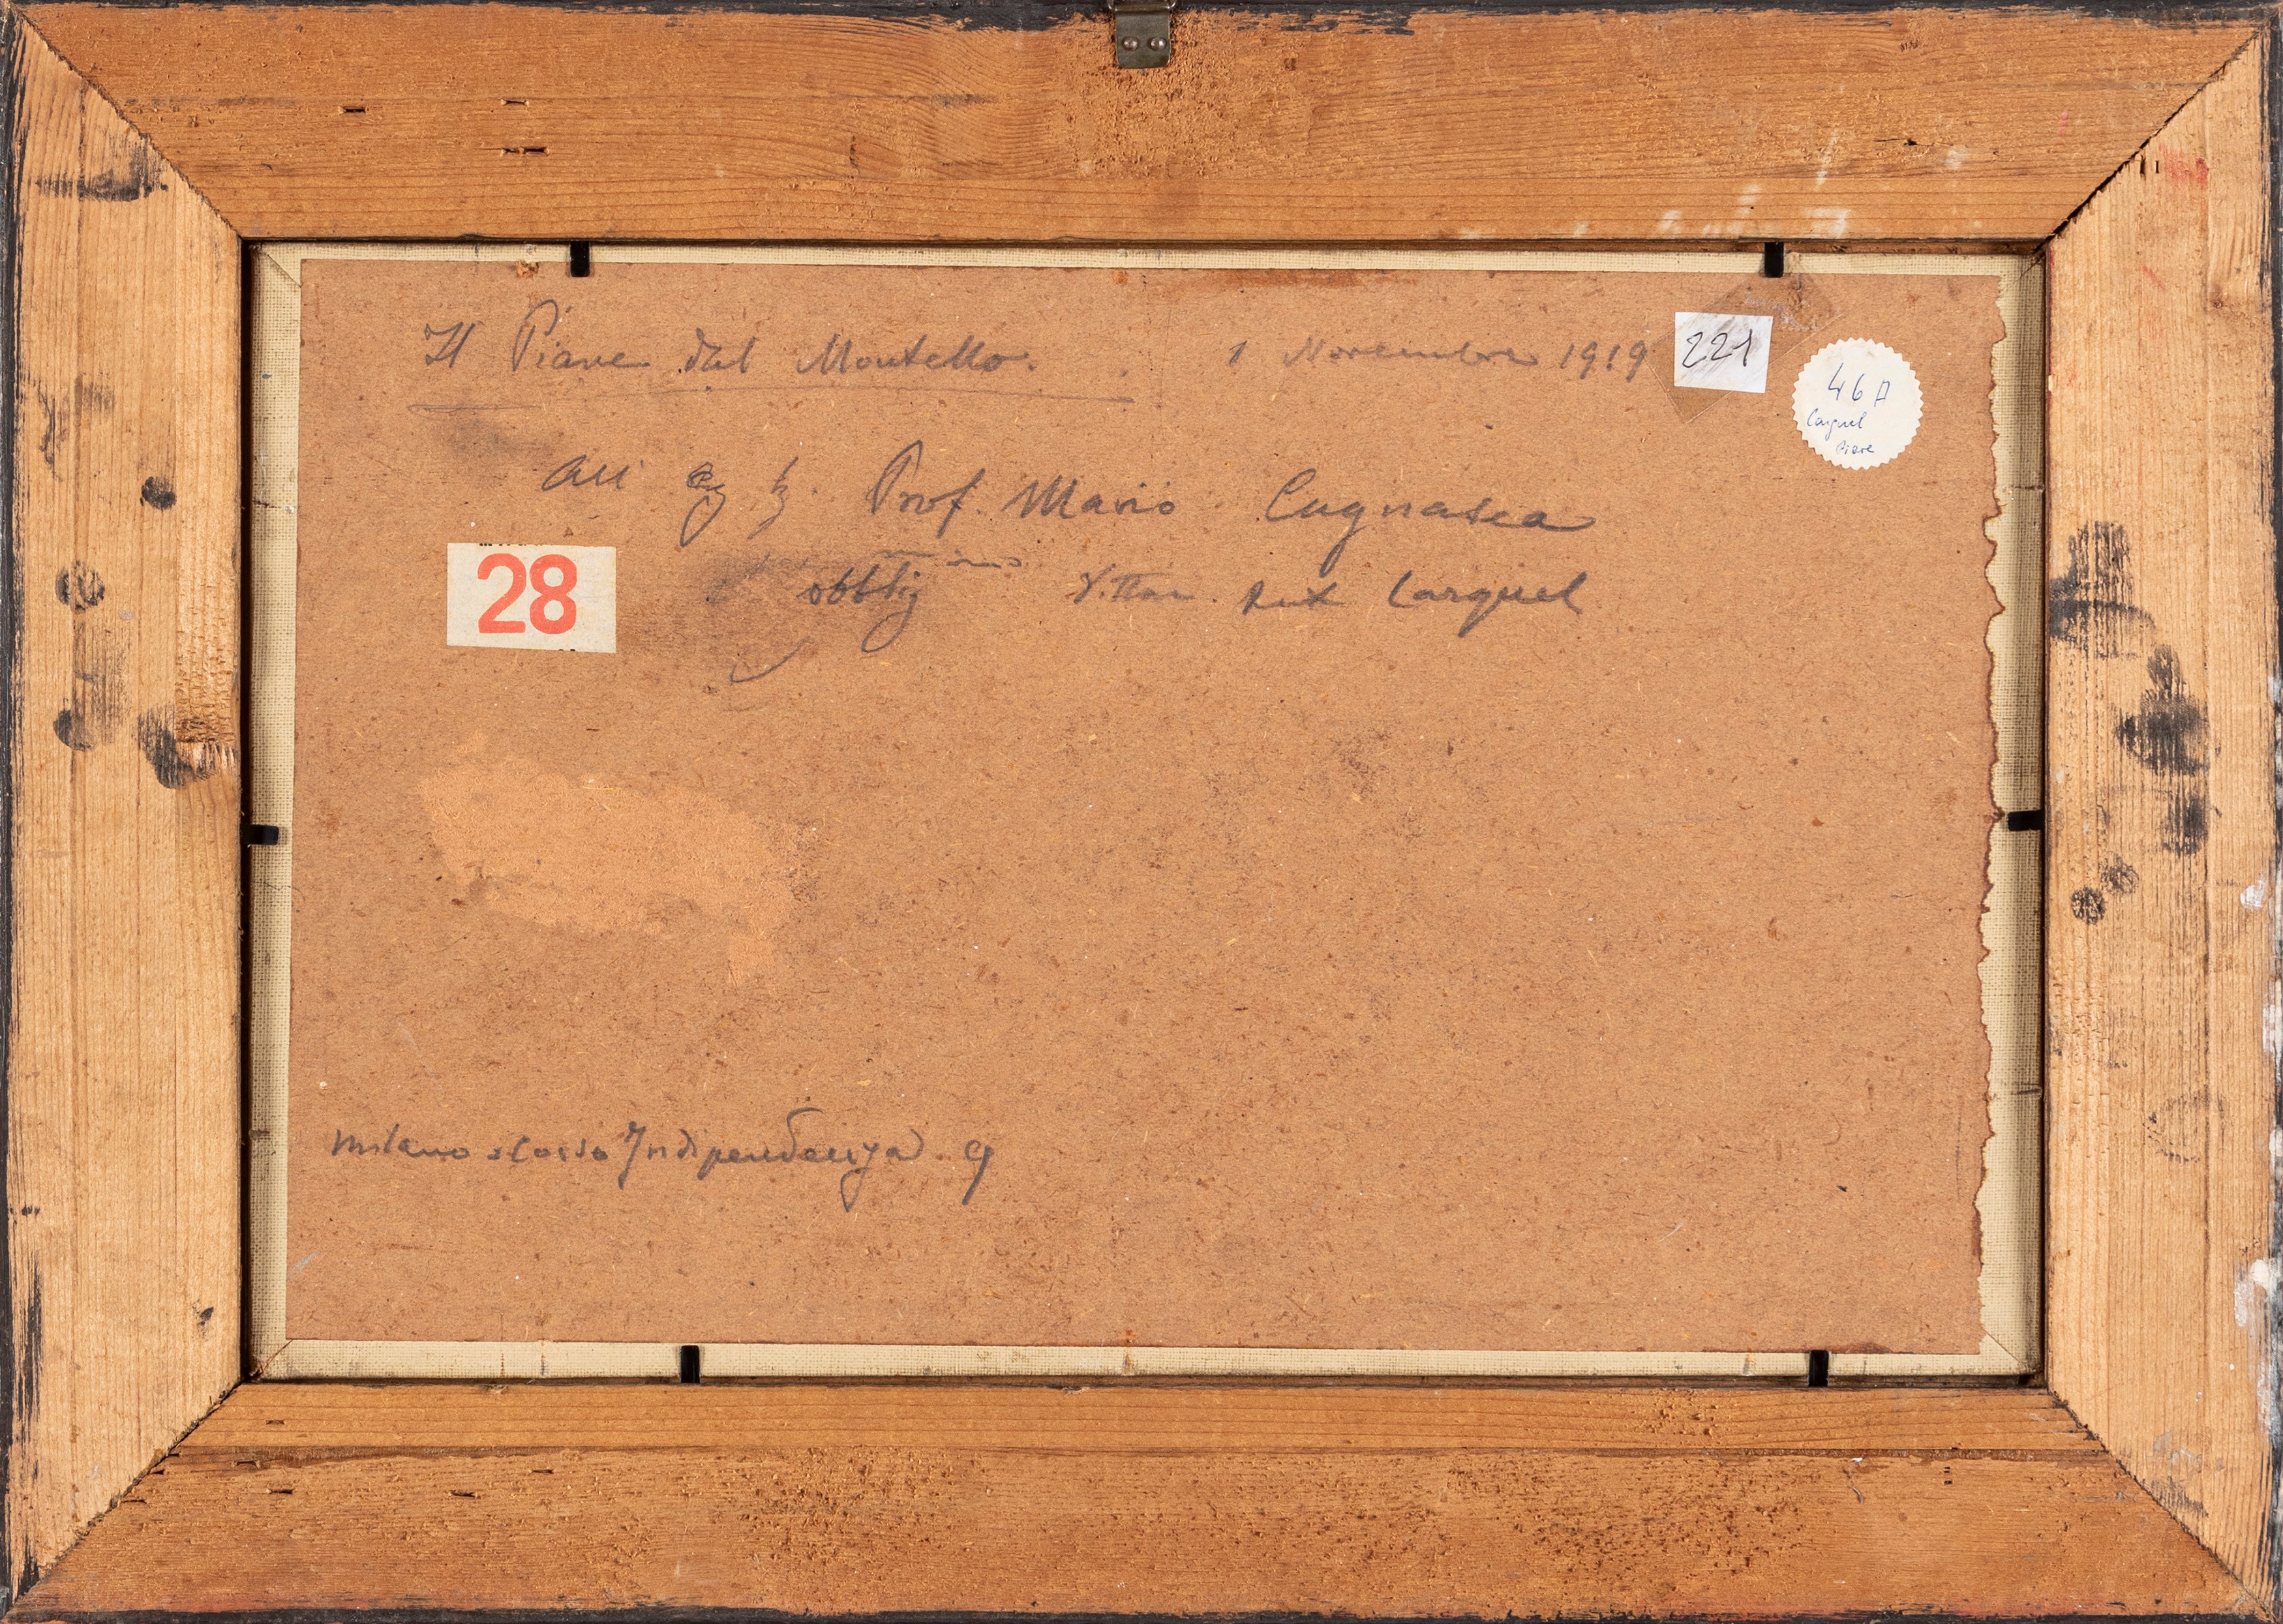 Il Piave dal Montello. 1 Novembre 1919
221
46A
Carguel
Piave
All' Prof. Mario Cugnasca
28
obblig mo Vittore Ant Carguel
Milano Corso Indipendenza 9